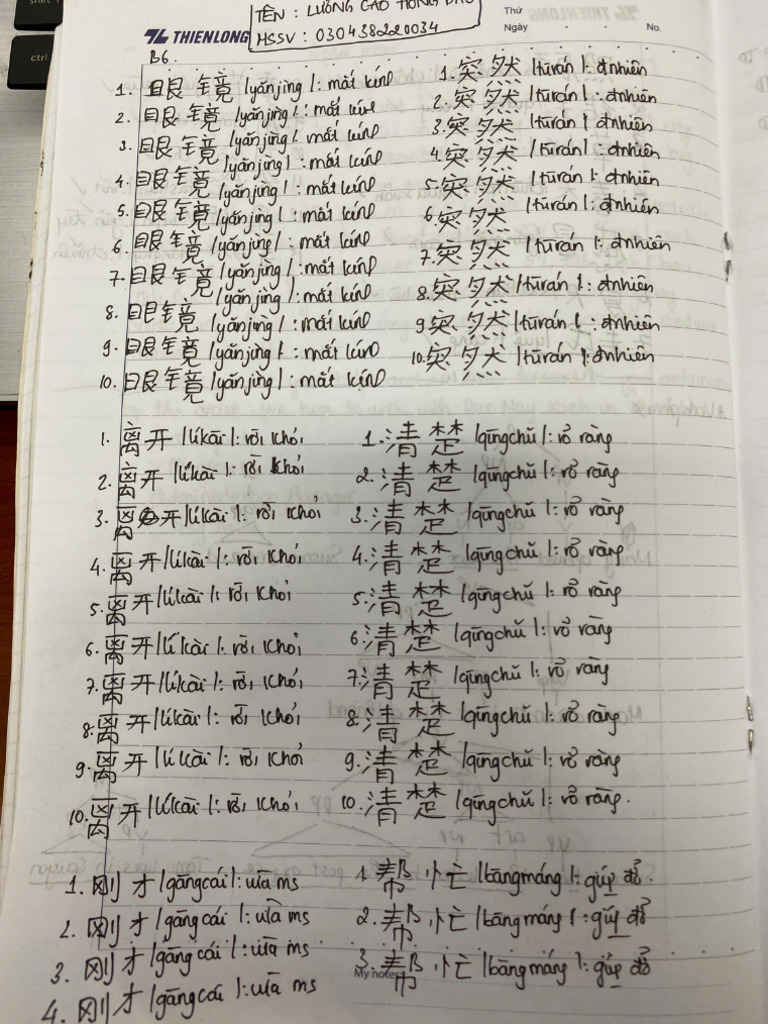 shift
ctrl
TÊN : LƯƠNG CAO HỒNG ĐÀO
MSSV : 030438220034
THIENLONG
Thứ
Ngày
No.
THIENLONG
B6.
1. 眼镜 /yǎnjìng/: mắt kính
2. 眼镜 /yǎnjìng/: mắt kính
3. 眼镜 /yǎnjìng/: mắt kính
/yǎnjìng/: mắt kính
4. 眼镜 /yǎnjìng/: mắt kính
5. 眼镜 /yǎnjìng/: mắt kính
6. 眼镜 /yǎnjìng/: mắt kính
7. 眼镜 /yǎnjìng/: mắt kính
/yǎnjìng/: mắt kính
8. 眼镜 /yǎnjìng/: mắt kính
9. 眼镜 /yǎnjìng/: mắt kính
10. 眼镜 /yǎnjìng/: mắt kính
1. 突然 /tūrán/: đ nhiên
2. 突然 /tūrán/: đ nhiên
3. 突然 /tūrán/: đ nhiên
4. 突然 /tūrán/: đ nhiên
5. 突然 /tūrán/: đ nhiên
6. 突然 /tūrán/: đ nhiên
7. 突然 /tūrán/: đ nhiên
8. 突然 /tūrán/: đ nhiên
9. 突然 /tūrán/: đ nhiên
10. 突然 /tūrán/: đ nhiên
1. 离开 /líkāi/: rời khỏi
2. 离开 /líkāi/: rời khỏi
3. 离开 /líkāi/: rời khỏi
4. 离开 /líkāi/: rời khỏi
5. 离开 /líkāi/: rời khỏi
6. 离开 /líkāi/: rời khỏi
7. 离开 /líkāi/: rời khỏi
8. 离开 /líkāi/: rời khỏi
9. 离开 /líkāi/: rời khỏi
10. 离开 /líkāi/: rời khỏi
1. 清楚 /qīngchǔ/: rổ ràng
2. 清楚 /qīngchǔ/: rổ ràng
3. 清楚 /qīngchǔ/: rổ ràng
4. 清楚 /qīngchǔ/: rổ ràng
5. 清楚 /qīngchǔ/: rổ ràng
6. 清楚 /qīngchǔ/: rổ ràng
7. 清楚 /qīngchǔ/: rổ ràng
8. 清楚 /qīngchǔ/: rổ ràng
9. 清楚 /qīngchǔ/: rổ ràng
10. 清楚 /qīngchǔ/: rổ ràng.
1. 刚才 /gāngcái/: vừa ms
2. 刚才 /gāngcái/: vừa ms
3. 刚才 /gāngcái/: vừa ms
4. 刚才 /gāngcái/: vừa ms
1. 帮忙 /bāngmáng/: giúp đổ.
2. 帮忙 /bāngmáng/: giúp đổ
3. 帮忙 /bāngmáng/: giúp đổ
My notes